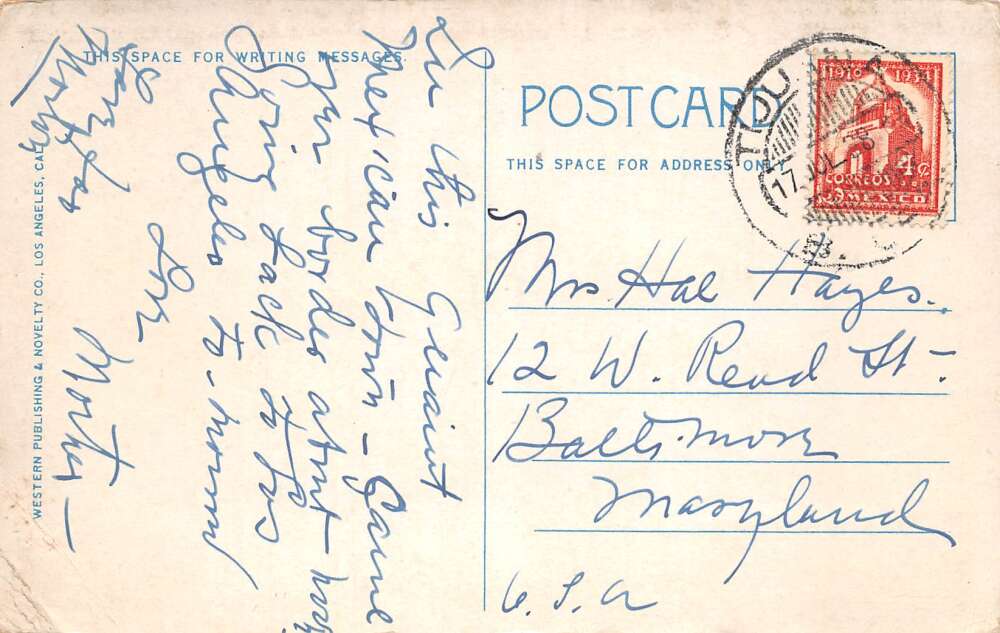 THIS SPACE FOR WRITING MESSAGES.
POST CARD
THIS SPACE FOR ADDRESS ONLY
WESTERN PUBLISHING & NOVELTY CO., LOS ANGELES, CAL.
In this Quaint
Mexican town - Game
over border at
Going back to Los
Angeles to-morrow
Love
Mother -
Mrs Hal Hayes.
12 W. Read St.
Baltimore
Maryland
U.S.A
1910 1934
4¢
CORREOS
MEXICO
17 JUL